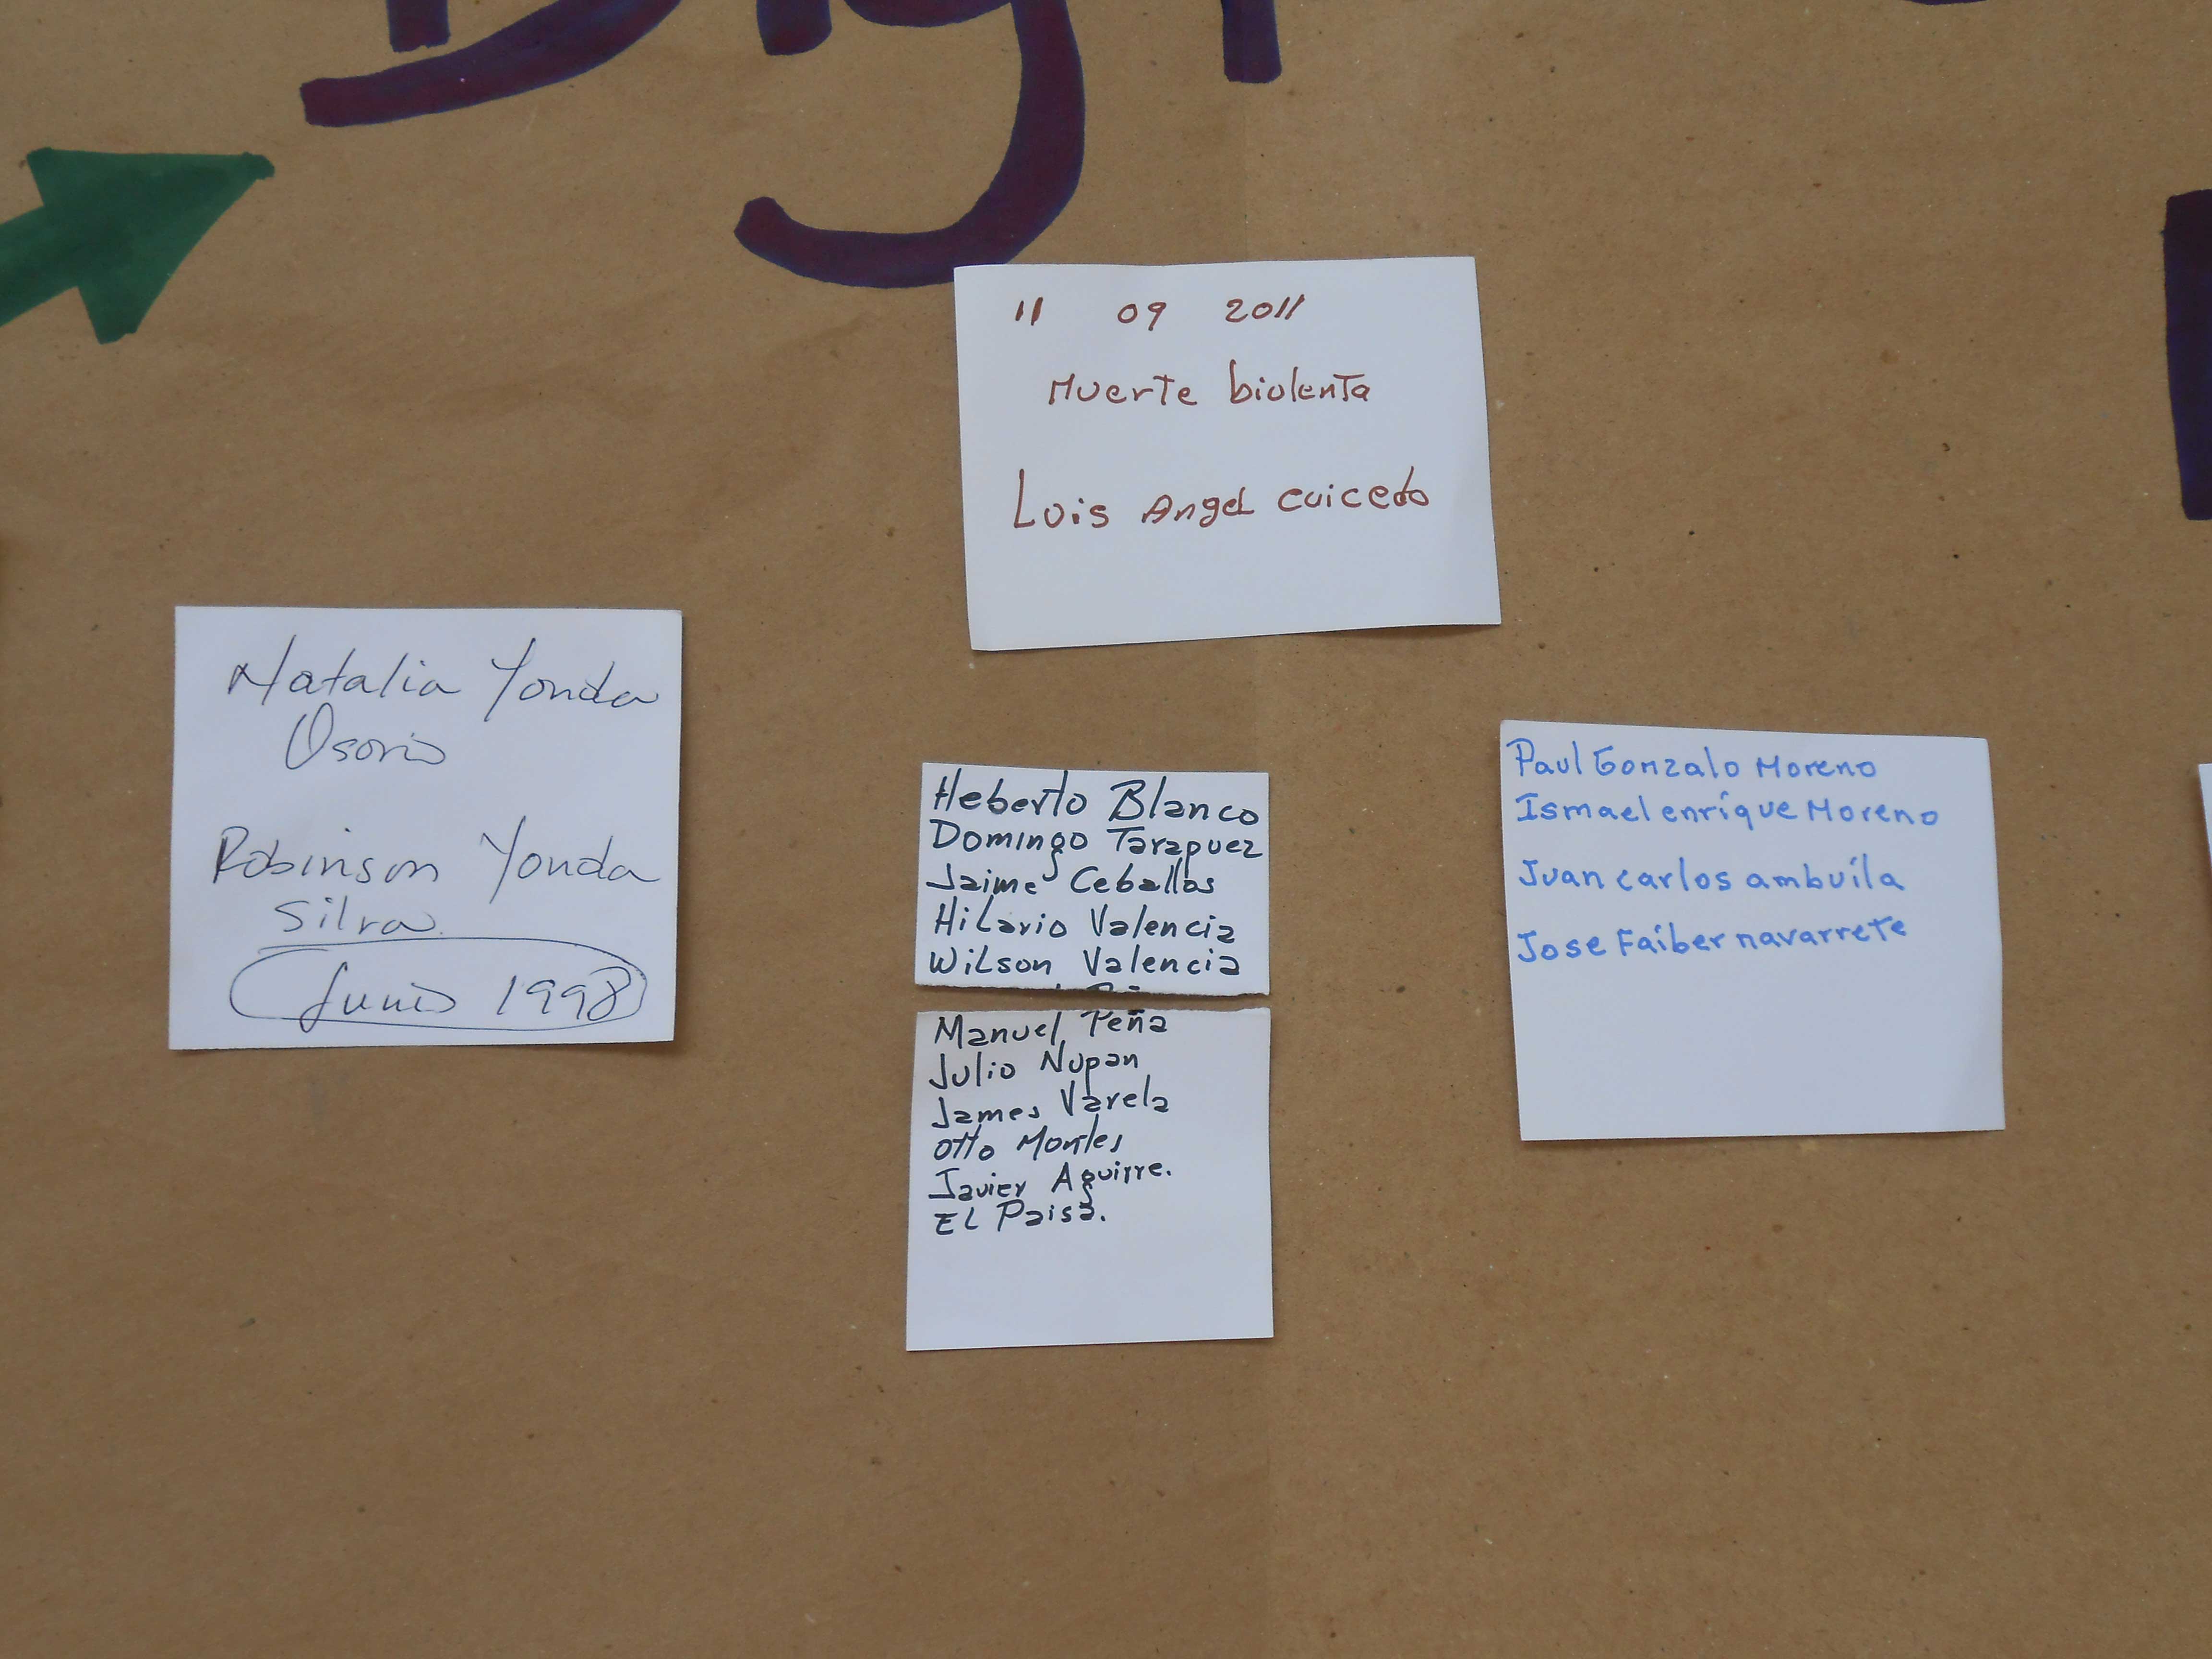 11 09 2011
Muerte biolenta
Luis Angel cuicedo
Natalia Yonda
Osorio
Robinson Yonda
Silva
Junio 1998
Heberto Blanco
Domingo Tarapuez
Jaime Ceballos
Hilario Valencia
Wilson Valencia
Manuel Peña
Julio Nupan
James Varela
Otto Montes
Javier Aguirre.
El Paisa.
Paul Gonzalo Moreno
Ismael enrique Moreno
Juan carlos ambuila
Jose Faiber navarrete